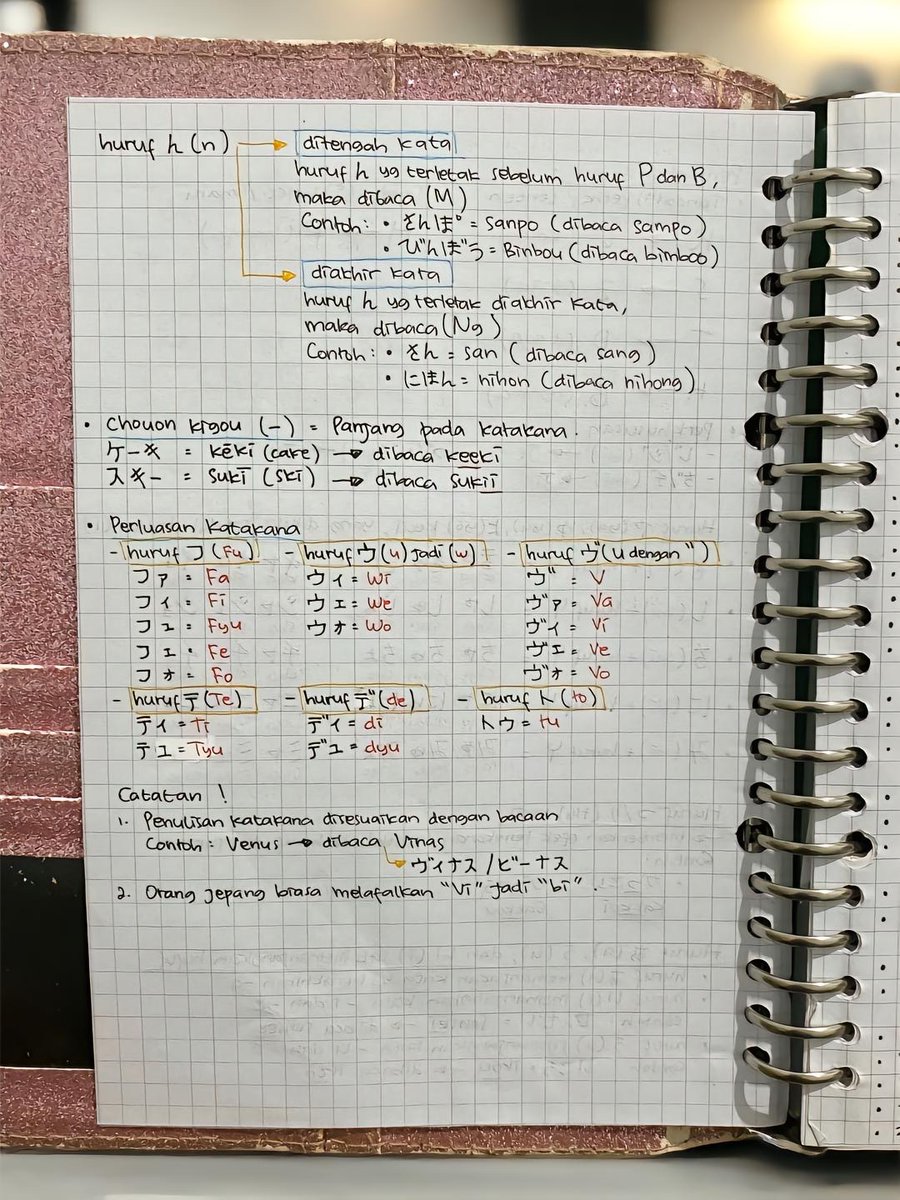 huruf ん (n) → ditengah kata
huruf ん yg terletak sebelum huruf P dan B,
maka dibaca (M)
Contoh : • さんぽ = sanpo (dibaca sampo)
• びんぼう = Binbou (dibaca bimboo)
diakhir kata
huruf ん yg terletak diakhir kata,
maka dibaca (Ng)
Contoh : • さん = san (dibaca sang)
• にほん = nihon (dibaca nihong)
• Chouon kigou (-) = Panjang pada katakana.
ケーキ = kēkī (cake) → dibaca keeki
スキー = sukī (ski) → dibaca sukii
• Perluasan katakana
- huruf フ (Fu) - huruf ウ (u) jadi (w) - huruf ヴ (u dengan ")
ファ = Fa ウィ = Wi ヴ = V
フィ = Fi ウェ = We ヴァ = Va
フュ = Fyu ウォ = Wo ヴィ = Vi
フェ = Fe ヴェ = Ve
フォ = Fo ヴォ = Vo
- huruf テ (Te) - huruf デ (de) - huruf ト (to)
ティ = Ti ディ = di トゥ = tu
テュ = Tyu デュ = dyu
Catatan !
1. Penulisan katakana disesuaikan dengan bacaan
Contoh : Venus → dibaca Vinas
→ ヴィナス / ビーナス
2. Orang jepang biasa melafalkan "Vi" jadi "bi".